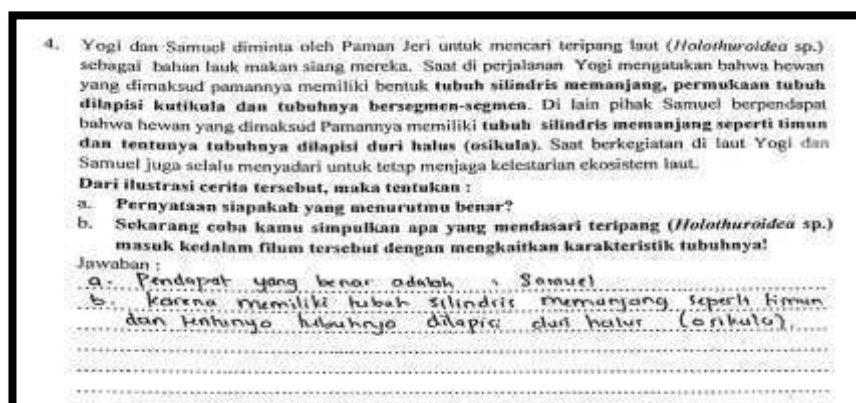 4. Yogi dan Samuel diminta oleh Paman Jeri untuk mencari teripang laut (Holothuroidea sp.)
sebagai bahan lauk makan siang mereka. Saat di perjalanan Yogi mengatakan bahwa hewan
yang dimaksud pamannya memiliki bentuk tubuh silindris memanjang, permukaan tubuh
dilapisi kutikula dan tubuhnya bersegmen-segmen. Di lain pihak Samuel berpendapat
bahwa hewan yang dimaksud Pamannya memiliki tubuh silindris memanjang seperti timun
dan tentunya tubuhnya dilapisi duri halus (osikula). Saat berkegiatan di laut Yogi dan
Samuel juga selalu menyadari untuk tetap menjaga kelestarian ekosistem laut.
Dari ilustrasi cerita tersebut, maka tentukan :
a. Pernyataan siapakah yang menurutmu benar?
b. Sekarang coba kamu simpulkan apa yang mendasari teripang (Holothuroidea sp.)
masuk kedalam filum tersebut dengan mengkaitkan karakteristik tubuhnya!
Jawaban :
a. Pendapat yang benar adalah : Samuel
b. Karena memiliki tubuh silindris memanjang seperti timun
dan tentunya tubuhnya dilapisi duri halus (osikula)